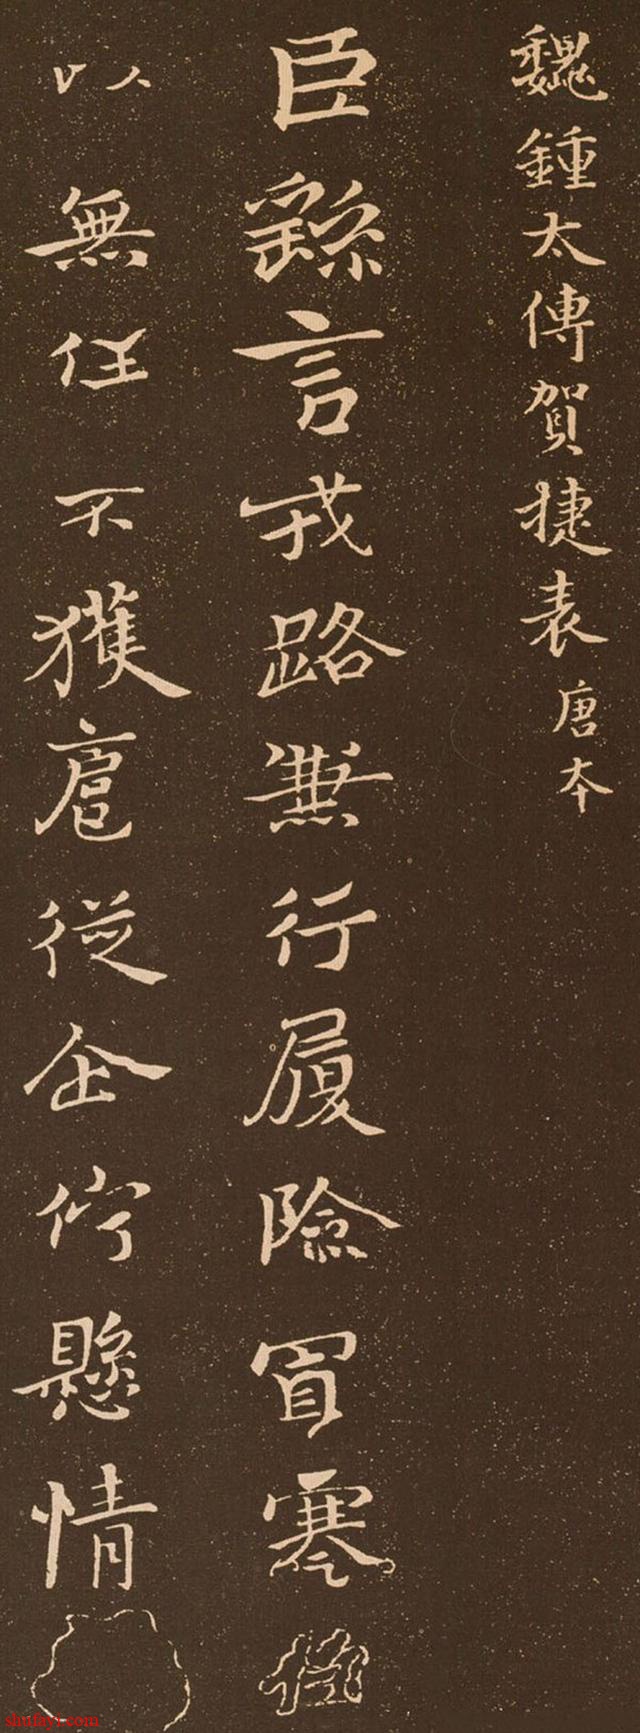 魏鍾太傅賀捷表唐本
臣繇言戎路兼行履險冐寒
以無任不獲扈從企佇懸情
shufayi.com